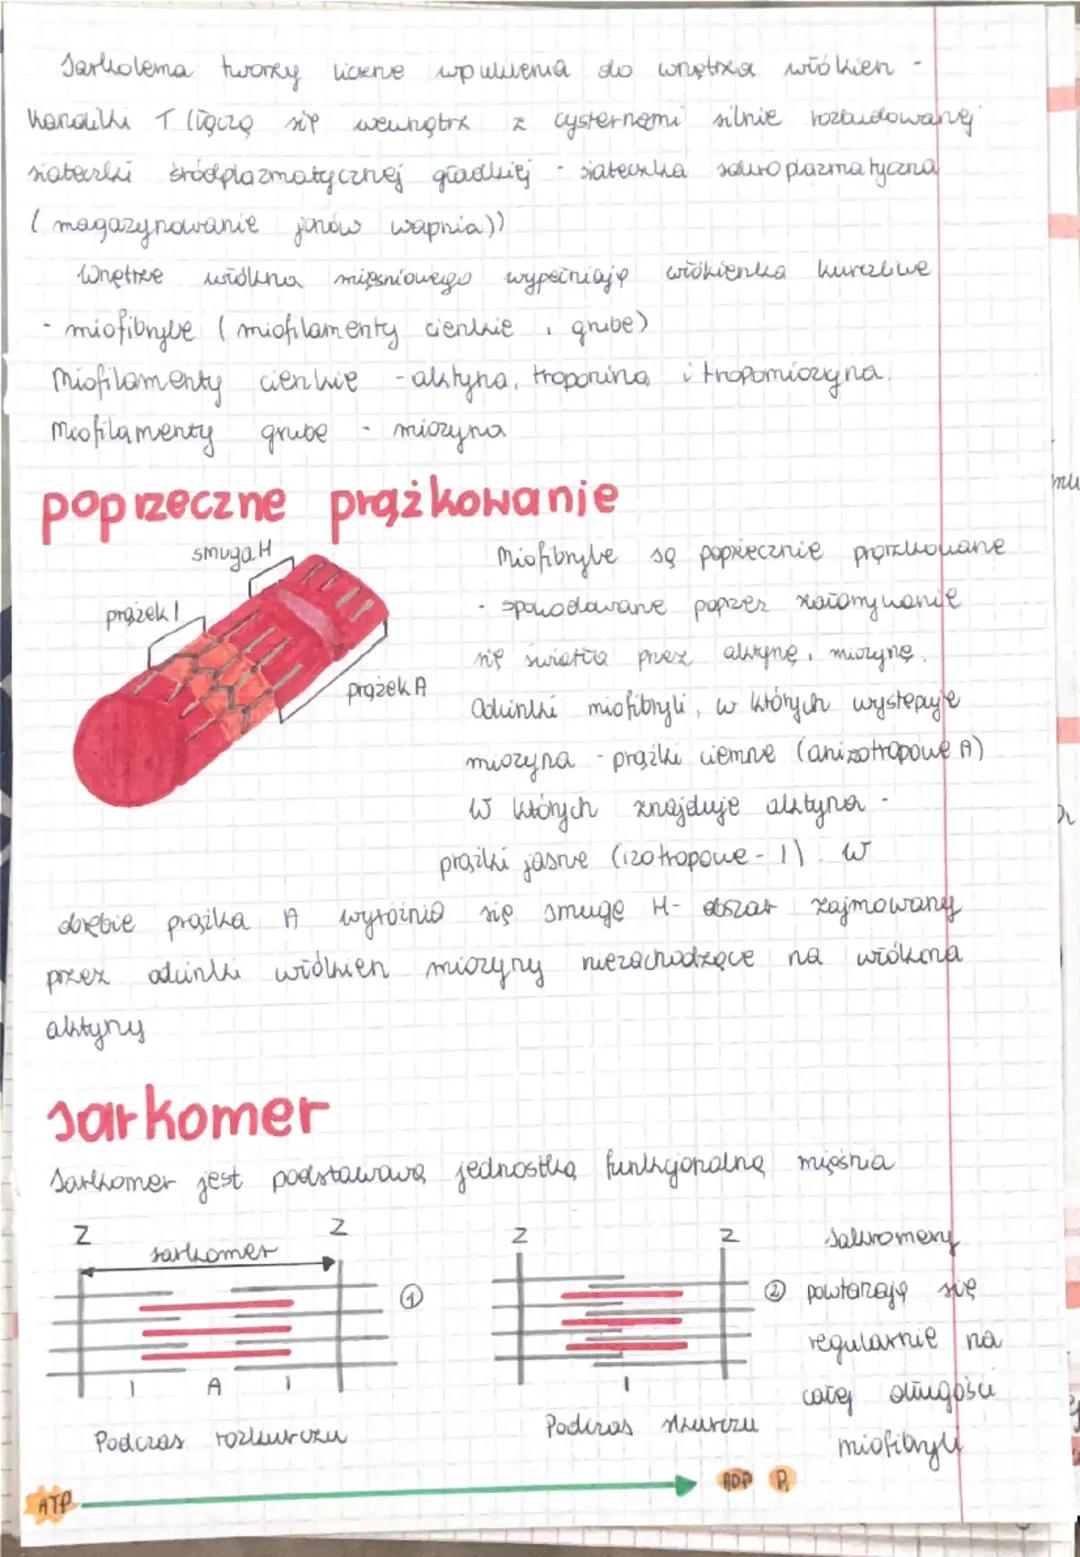 Sarkolema tworzy liczne wpuklenia do wnętrza włókien -
kanaliki T (łączą się wewnątrz z cysternami silnie rozbudowanej
siateczki śródplazmatycznej gładkiej - siateczka sarkoplazmatyczna
(magazynowanie jonów wapnia))
Wnętrze włókna mięśniowego wypełniają włókienka kurczliwe
- miofibryle (miofilamenty cienkie i grube)
Miofilamenty cienkie - aktyna, troponina i tropomiozyna.
Miofilamenty grube - miozyna
poprzeczne prążkowanie
smuga H
prążek I
prążek A
Miofibryle są poprzecznie prążkowane
- spowodowane poprzez załamywanie
się światła przez aktynę i miozynę.
Odcinki miofibryli, w których występuje
miozyna - prążki ciemne (anizotropowe A)
W których znajduje aktyna -
prążki jasne (izotropowe - I). W
obrębie prążka A wyróżnia się smugę H - obszar zajmowany
przez odcinki włókien miozyny niezachodzące na włókna
aktyny
sarkomer
Sarkomer jest podstawową jednostką funkcjonalną mięśnia
Z Z Z Z
sarkomer
① ②
I A I I
Podczas rozkurczu
Podczas skurczu
Sakromery
powtarzają się
regularnie na
całej długości
miofibryli
ATP ADP Pi
mu